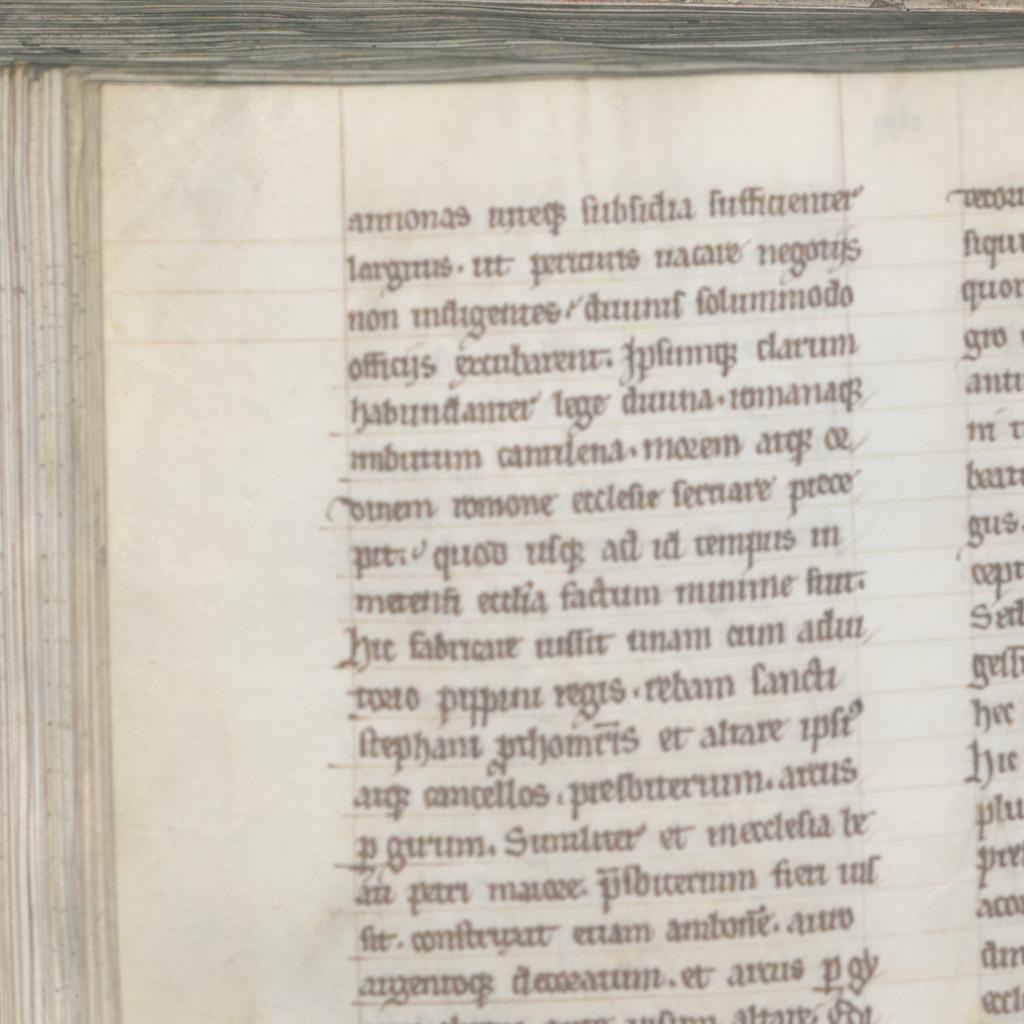 annonas uiteq; subsidia sufficienter
largitus. ut peticuris uacare negotijs
non indigentes. diuinis solummodo
officijs excubarent. Ipsumq; clarum
habundanter lege diuina. romanaq;
imbutum cantilena. morem atq; or
dinem romane ecclesie seruare prece
pit. quod usq; ad id tempus in
metensi ecclia factum minime fuit.
hic fabricare iussit unam cum adiu
torio pippini regis. rebam sancti
stephani prthomris et altare ipsi9
atq; cancellos. presbiterium. arcus
p girum. Similiter et in ecclesia be
ati petri maiore. psbiterium fieri iuſ
sit. construxit etiam ambone. auro
argentoq; decoratum. et arcus p gy
siqu
quor
gro
anti
in
beat
gus.
cept
Sed
gess
hec
hic
plu
pre
aco
dm
eccl